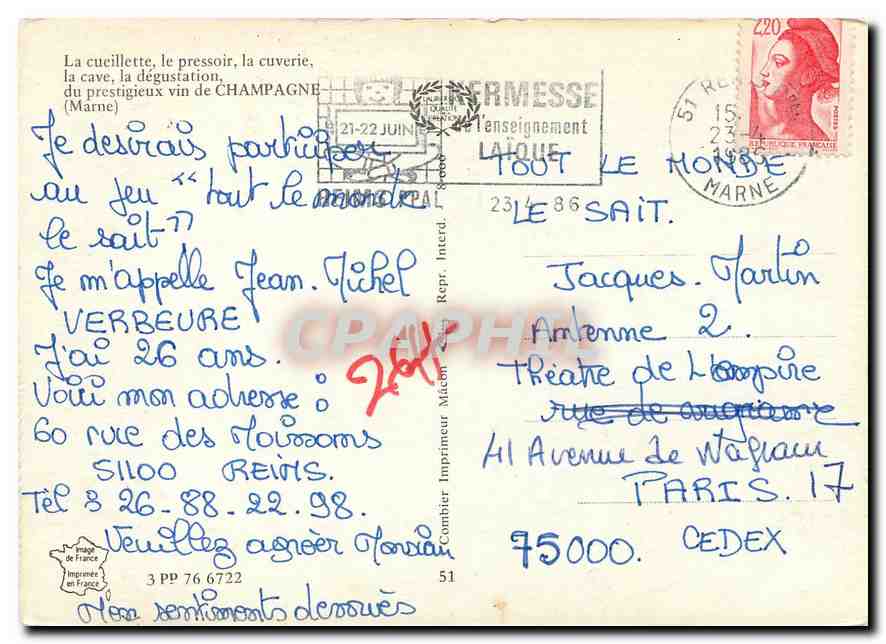 La cueillette, le pressoir, la cuverie,
la cave, la dégustation,
du prestigieux vin de CHAMPAGNE
(Marne)
Je desirais participer
au jeu "tout le monde
le sait"
Je m'appelle Jean. Michel
VERBEURE
J'ai 26 ans.
Voici mon adresse :
60 rue des Moissons
51100 REIMS.
Tèl : 26-88-22-98.
Veuillez agréer Monsieur
Mon sentiments devoués
Image
de France
Imprimée
en France
3 PP 76 6722
51
Combier Imprimeur Mâcon Repr. Interd.
21-22 JUIN
KERMESSE
de l'enseignement
LAÏQUE
REIMS PPAL
23 4 86
51 REIMS
15
23-4
MARNE
2,20
POSTES
REPUBLIQUE FRANÇAISE
TOUT LE MONDE
LE SAIT.
Jacques. Martin
Antenne 2.
Théatre de L'empire
41 Avenue de Wagram
PARIS. 17
75000. CEDEX
CPAPHIL